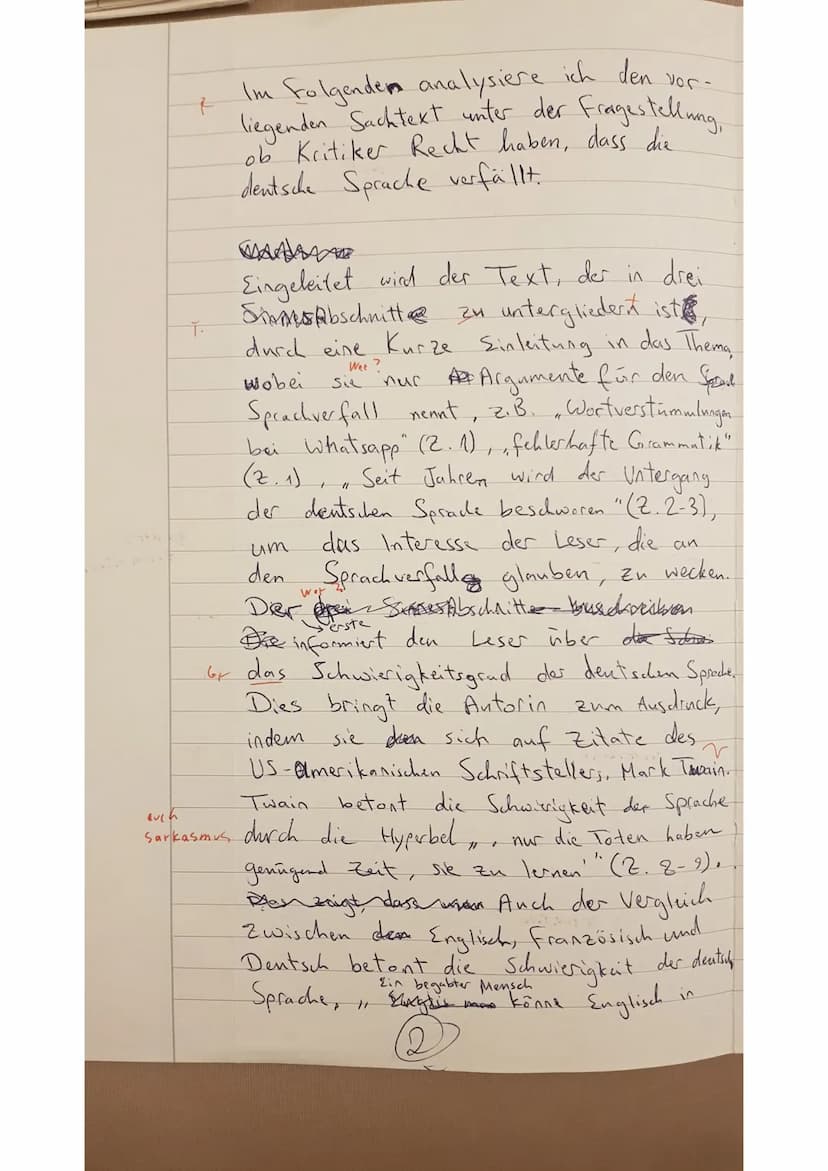 r Im Folgenden analysiere ich den vor-
liegenden Sachtext unter der Fragestellung,
ob Kritiker Recht haben, dass die
deutsche Sprache verfällt.
Eingeleitet wird der Text, der in drei
T. Sinnesabschnitte zu untergliedert ist,
durch eine Kurze Einleitung in das Thema,
Wer?
wobei sie nur Argumente für den
Sprachverfall nennt, z.B. „Wortverstümmlungen
bei Whatsapp" (Z. 1), „fehlerhafte Grammatik"
(Z. 1), „Seit Jahren wird der Untergang
der deutschen Sprache beschworen" (Z. 2-3),
um das Interesse der Leser, die an
den Sprachverfall glauben, zu wecken.
Der Abschnitt
erste
informiert den Leser über
Gr das Schwierigkeitsgrad der deutschen Sprache.
Dies bringt die Autorin zum Ausdruck,
indem sie sich auf Zitate des
US-amerikanischen Schriftstellers, Mark Twain.
Twain betont die Schwierigkeit der Sprache
auch
Sarkasmus durch die Hyperbel „, nur die Toten haben
genügend Zeit, sie zu lernen'" (Z. 8-9).
Auch der Vergleich
zwischen Englisch, Französisch und
Deutsch betont die Schwierigkeit der deutsch
Ein begabter Mensch
Sprache, „ könne Englisch in
2